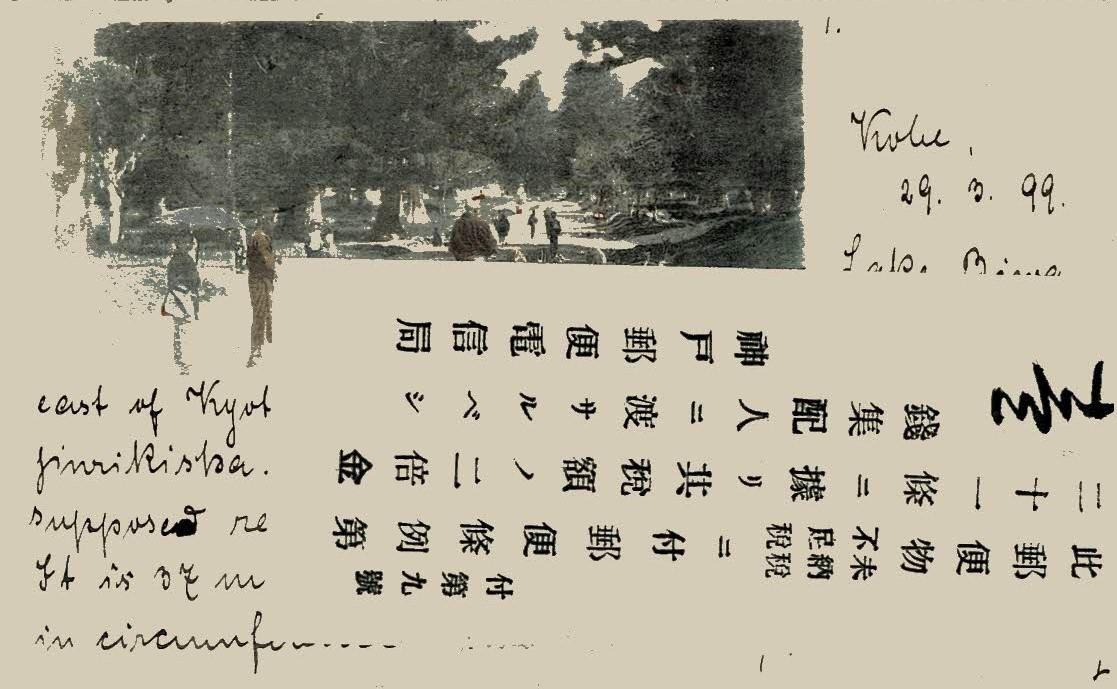 1.
Kobe,
29. 3. 99.
Lake Biwa
east of Kyot
jinrikisha.
supposed re
It is 37 m
in circumfe
付第九號
此郵便物未納税不足税ニ付郵便條例第
三十一條ニ據リ其税額ノ二倍金
錢集配人ニ渡サルベシ
神戸郵便電信局